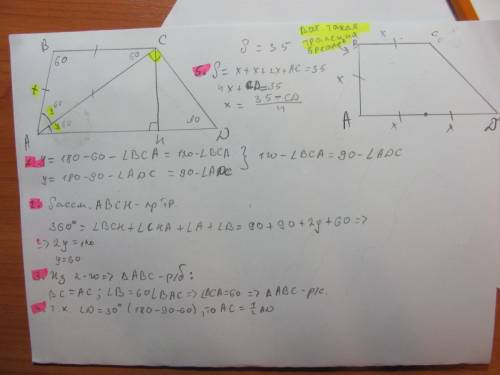 B
C
60
60
x
60
60
30
A
H
D
S = 35
5. S = x+x+2x+AC = 35
4x + CD = 35
x = 35-CD / 4
Вот такая трапеция
B
x
C
x
A
x
x
D
1. y = 180-60-∠BCA = 120-∠BCA
y = 180-90-∠ADC = 90-∠ADC
} 120-∠BCA = 90-∠ADC
2. Рассм. ABCH - пр. тр.
360° = ∠BCH+∠CHA+∠A+∠B = 90+90+2y+60 =>
=> 2y = 120
y=60
3. Из 2-го => △ABC - р/б:
BC = AC; ∠B = 60 ∠BAC => ∠BCA=60 => △ABC - р/с.
4. т.к. ∠D=30° (180-90-60), то AC = 1/2 AD